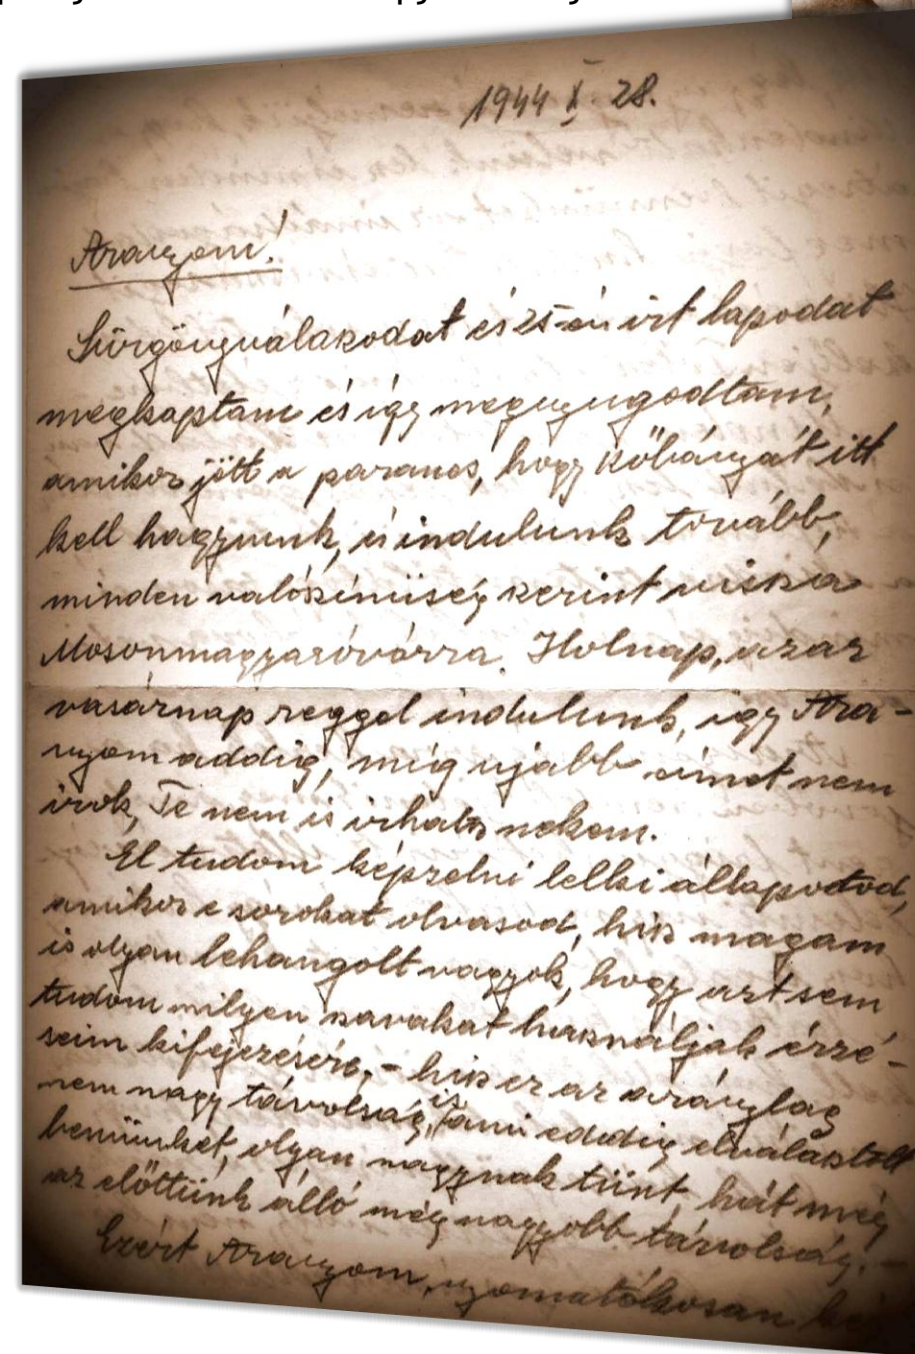 1944 X. 28.
Aranyom!
Sürgönyválaszodat és 25-én irt lapodat
megkaptam és igy megnyugodtam,
amikor jött a parancs, hogy Kőbányát itt
kell hagyjunk, és indulunk tovább,
minden valószinüség szerint vissza
Mosonmagyaróvárra. Holnap, azaz
vasárnap reggel indulunk, igy Ara-
nyom addig, mig ujabb cimet nem
irok, Te nem is irhatsz nekem.
El tudom képzelni lelki állapotod,
amikor e sorokat olvasod, hisz magam
is olyan lehangolt vagyok, hogy azt sem
tudom milyen szavakat használjak érzé-
seim kifejezésére, - hisz ez az aránylag
nem nagy távolság is, ami eddig elválasztott
bennünket, olyan nagynak tünt hát még
az előttünk álló még nagyobb távolság. -
Ezért Aranyom, nyomatékosan